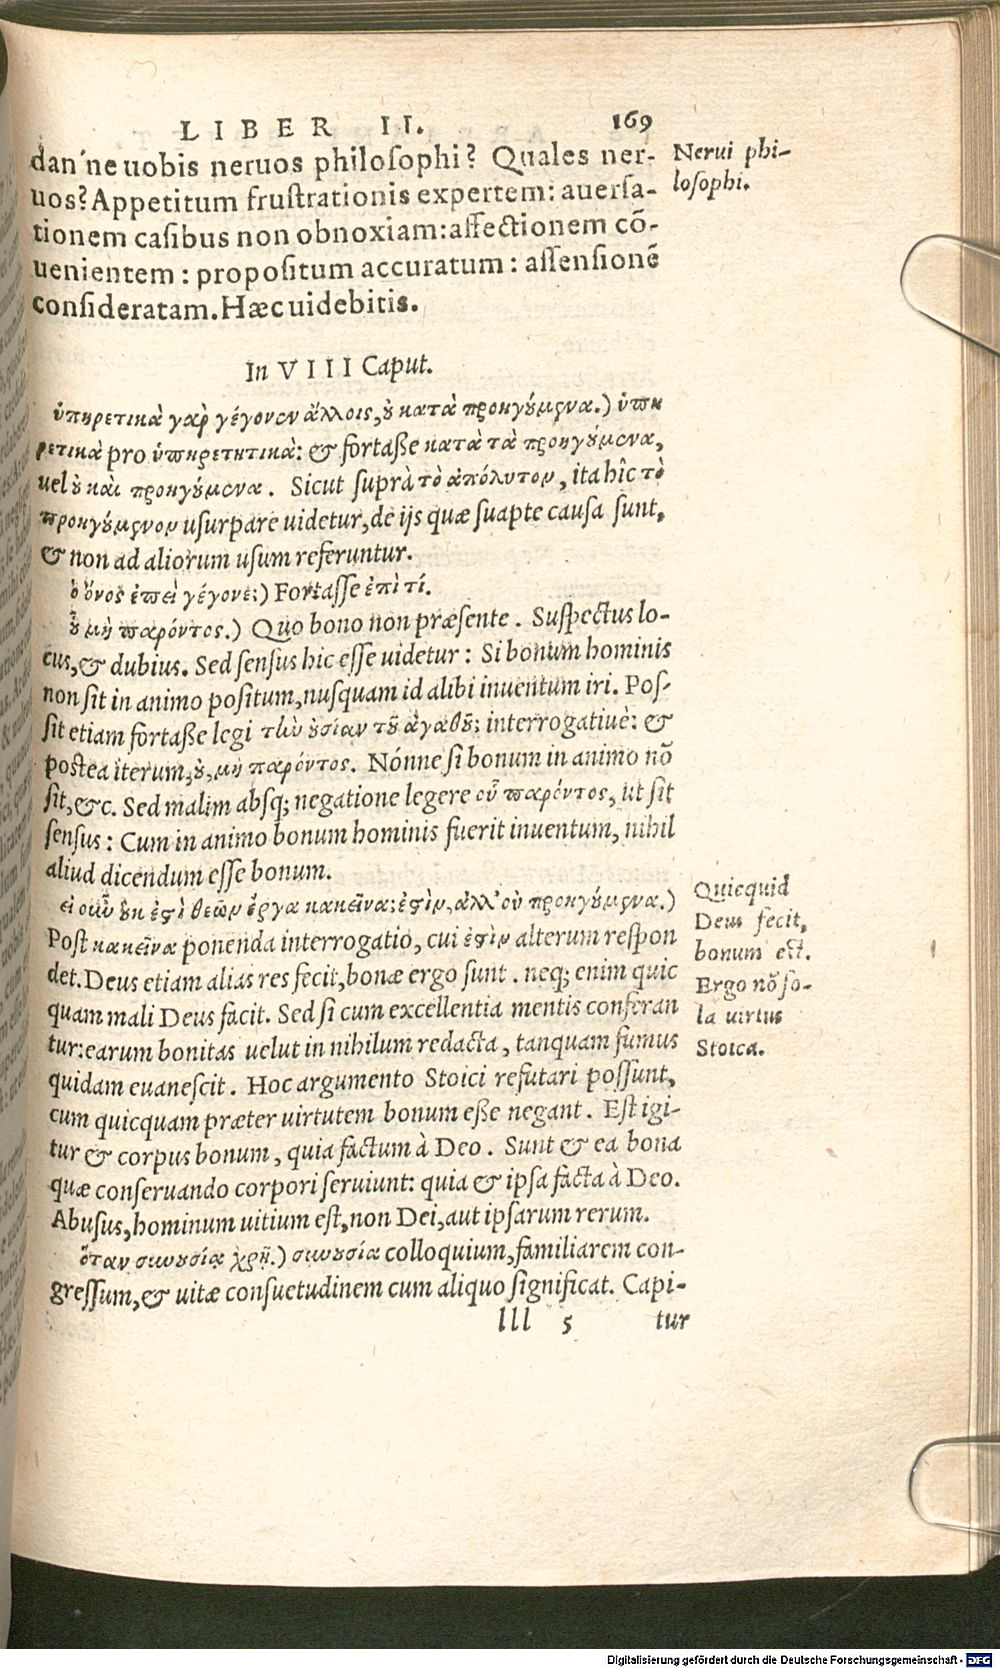 LIBER II. 169
dan'ne uobis neruos philosophi? Quales ner-
uos? Appetitum frustrationis expertem: auersa-
tionem casibus non obnoxiam: affectionem cõ-
uenientem: propositum accuratum: assensionẽ
consideratam. Hæc uidebitis.
Nerui phi-
losophi.
In VIII Caput.
ὑπηρετικὰ γὰρ γέγονεν ἄλλοις, ȣ κατὰ προηγȣ́μενα.) ὑπη
ρετικὰ pro ὑπηρετητικὰ: & fortaße κατὰ τὰ προηγȣ́μενα,
uel ȣ καὶ προηγȣ́μενα. Sicut suprà τὸ ἀπόλυτον, ita hîc τὸ
προηγȣ́μενον usurpare uidetur, de ijs quæ suapte causa sunt,
& non ad aliorum usum referuntur.
ὁ ὄνος ἐπεὶ γέγονε;) Fortasse ἐπὶ τί.
ȣ̓ μὴ παρόντος.) Quo bono non præsente. Suspectus lo-
cus, & dubius. Sed sensus hic esse uidetur: Si bonum hominis
non sit in animo positum, nusquam id alibi inuentum iri. Pos-
sit etiam fortaße legi τὴν ȣσίαν τȣ͂ ἀγαθȣ͂; interrogatiuè: &
postea iterum, ȣ, μὴ παρόντος. Nónne si bonum in animo nõ
sit, &c. Sed malim absq; negatione legere οὗ παρόντος, ut sit
sensus: Cum in animo bonum hominis fuerit inuentum, nihil
aliud dicendum esse bonum.
εἰ οὖν ȣκ ἐστὶ θεῶν ἔργα κακεῖνα; ἐστὶν, ἀλλ' οὐ προηγȣ́μενα.)
Post κακεῖνα ponenda interrogatio, cui ἐστὶν alterum respon
det. Deus etiam alias res fecit, bonæ ergo sunt. neq; enim quic
quam mali Deus facit. Sed si cum excellentia mentis conferan
tur: earum bonitas uelut in nihilum redacta, tanquam fumus
quidam euanescit. Hoc argumento Stoici refutari possunt,
cum quicquam præter uirtutem bonum eße negant. Est igi-
tur & corpus bonum, quia factum à Deo. Sunt & ea bona
quæ conseruando corpori seruiunt: quia & ipsa facta à Deo.
Abusus, hominum uitium est, non Dei, aut ipsarum rerum.
Quicquid
Deus fecit,
bonum est.
Ergo nõ so-
la uirtus
Stoica.
ὅταν συνȣσίᾳ χρῇ.) συνȣσία colloquium, familiarem con-
gressum, & uitæ consuetudinem cum aliquo significat. Capi-
lll 5 tur
Digitalisierung gefördert durch die Deutsche Forschungsgemeinschaft - DFG